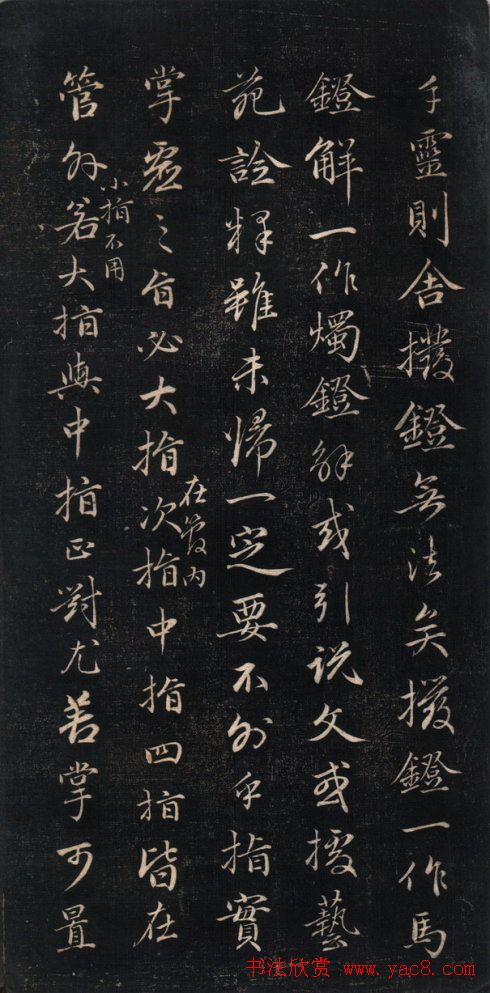 手靈則舍撥鐙無法矣撥鐙一作馬
鐙解一作燭鐙解或引說文或據藝
苑詮釋雖未歸一定要不外乎指實
掌虛之旨必大指次指中指四指皆在
在管內
管外若大指與中指正對尤善掌可置
小指不用
书法欣赏 www.yac8.com